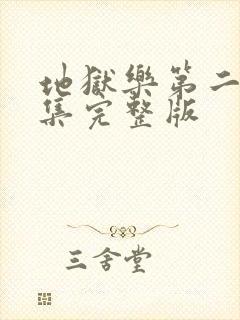 地獄樂第二
集完整版
三舍堂